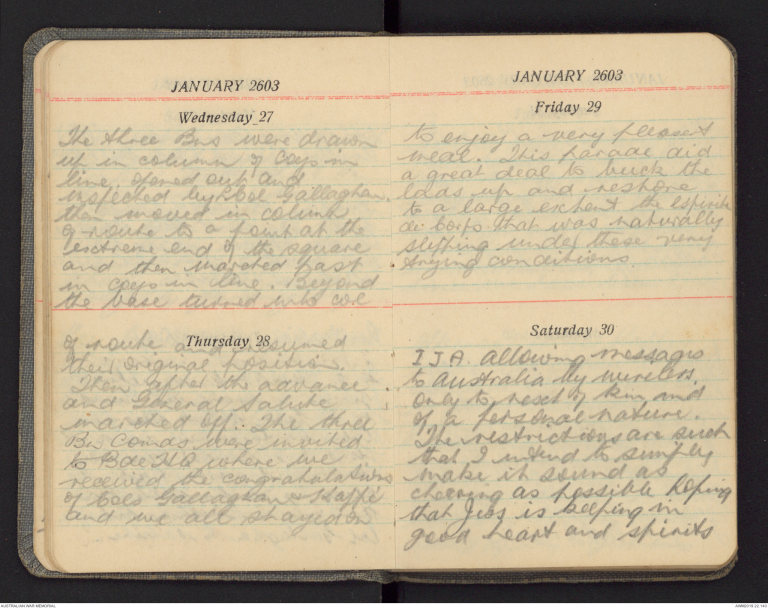 JANUARY 2603
Wednesday 27
The three Bns were drawn
up in column of Coys in
line. Opened out and
inspected by Col Gallaghan.
then moved in column
of route to a point at the
exstreme end of the square
and then marched past
in Coys in line. Beyond
the base turned into col
Thursday 28
of route and resumed
their original position.
Then after the advance
and General Salute
marched off. The three
Bn Comds were invited
to Bde HQ where we
received the congratulations
of Cols Gallaghan &
and we all stayed on
JANUARY 2603
Friday 29
to enjoy a very pleasant
meal. This parade did
a great deal to buck the
lads up and restore
to a large extent the Espirit
de Corps that was naturally
under these very
trying conditions.
Saturday 30
I J A. allowing messages
to Australia by wireless.
only to next of kin and
of a personal nature.
The restrictions are such
that I intend to simply
make it sound as
cheering as possible hoping
that is keeping in
good heart and spirits
AUSTRALIAN WAR MEMORIAL